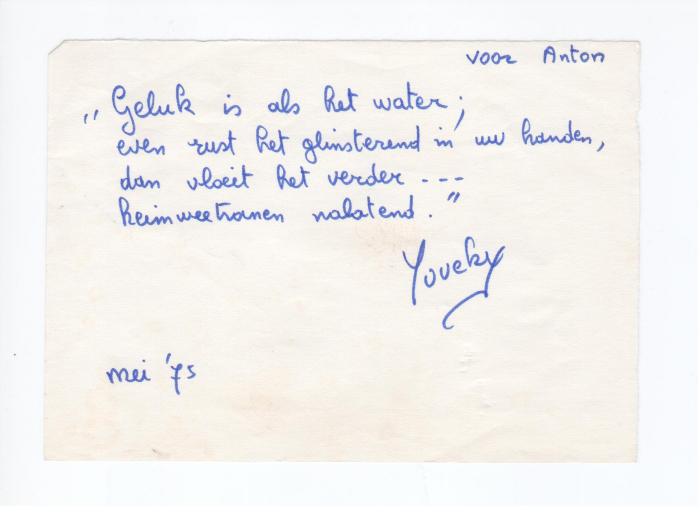 voor Anton
„Geluk is als het water;
even rust het glinsterend in uw handen,
dan vloeit het verder ---
heimweetranen nalatend."
Youeky
mei '75